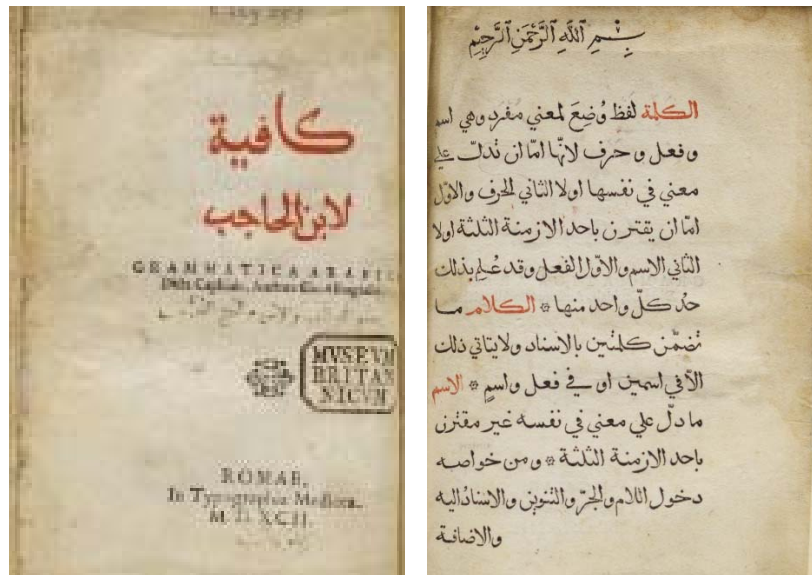 كافية
لابن الحاجب
GRAMMATICA ARABICA
Dicta Caphiah, Autore
MVSEVM
BRITAN
NICVM
ROMAE,
In Typographia Medicea.
M. D. XCII.
بِسْمِ ٱللَّهِ ٱلرَّحْمَنِ ٱلرَّحِيْمِ
الكلمة لفظ وُضِعَ لمعني مفرد وهي اسم
و فعل و حرف لانّها امّا ان تدلّ علي
معني في نفسها اولا الثاني الحرف والاوّل
امّا ان يقترن باحد الازمنة الثلثة اولا
الثاني الاسم والاوّل الفعل وقد عُلِم بذلك
حدّ كلّ واحد منها * الكلام ما
تضمّن كلمتين بالاسناد ولا يتاتي ذلك
الّا في اسمين او في فعل واسمٍ * الاسم
ما دلّ علي معني في نفسه غير مقترن
باحد الازمنة الثلثة * ومن خواصه
دخول اللام والجرّ والتنوين والاسنادُ اليه
والاضافة